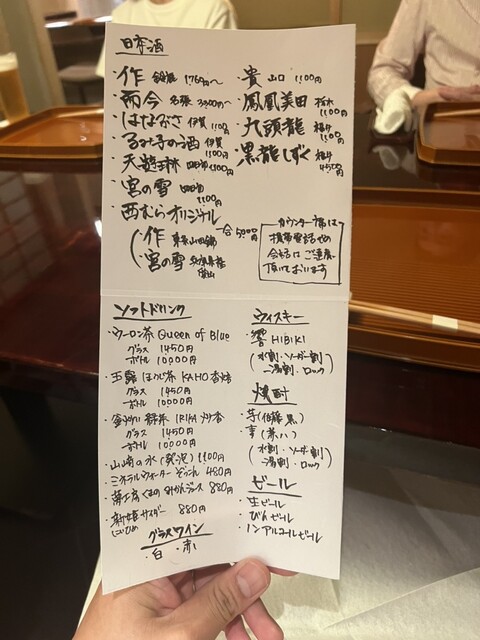 日本酒
・作 鈴鹿 1760円〜
・而今 名張 〜
・はなぶさ 伊賀 1100円
・るみ子の酒 伊賀 1100円
・天遊琳 四日市 1100円
・宮の雪 四日市 1100円
・西むらオリジナル
・作
・宮の雪
一合 5,000円
・貴 山口 1100円
・鳳凰美田 栃木 1100円
・九頭龍 福井 1100円
・黒龍しずく 福井 4500円
カウンター席は
携帯電話での
会話はご遠慮
頂いております
ソフトドリンク
・ウーロン茶 Queen of Blue
グラス 1450円
ボトル 10000円
・玉露 ほうじ茶 KAHO 香焙
グラス 1450円
ボトル 10000円
・釜炒り 緑茶 IRIKA
グラス 1450円
ボトル 10000円
・山崎の水(発泡) 1100円
・ミネラルウォーター 480円
みかんジュース 880円
・新姫サイダー 880円
にいひめ
グラスワイン
・白 ・赤
ウィスキー
・響 HIBIKI
(水割・ソーダ割
・湯割・ロック)
焼酎
・芋(佐藤 黒)
・麦(兼八)
(水割・ソーダ割
・湯割・ロック)
ビール
・生ビール
・びんビール
・ノンアルコールビール